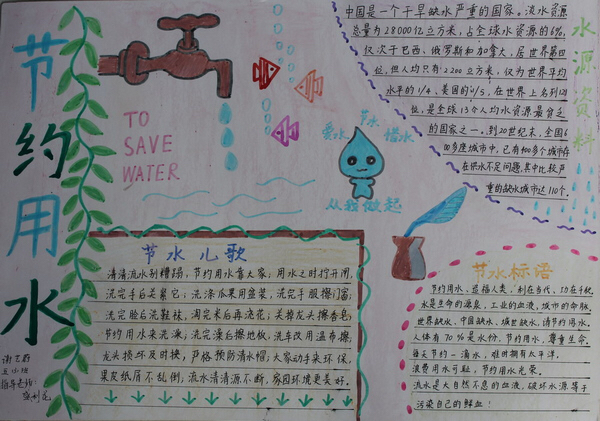 节约用水
TO
SAVE
WATER
爱水 节水 惜水
从我做起
水源资料
中国是一个干旱缺水严重的国家。淡水资源
总量为28000亿立方米,占全球水资源的6%,
仅次于巴西、俄罗斯和加拿大,居世界第四
位,但人均只有2200立方米,仅为世界平均
水平的1/4、美国的1/5,在世界上名列121
位,是全球13个人均水资源最贫乏
的国家之一。到20世纪末,全国6
00多座城市中,已有400多个城市存
在供水不足问题,其中比较严
重的缺水城市达110个。
节水儿歌
清清流水别糟蹋,节约用水靠大家,用水之时拧开闸,
洗完手后关紧它;洗涤瓜果用盆装,洗完干服擦门窗;
洗完脸后洗鞋袜,淘完米后再浇花;关掉龙头擦香皂,
节约用水来洗澡;洗完澡后擦地板,洗车改用湿布擦,
龙头损坏及时换,严格预防清水帽;大家动手来环保,
果皮纸屑不乱倒,流水清清源不断,家园环境更美好。
节水标语
节约用水、造福人类,利在当代、功在千秋。
水是生命的源泉、工业的血液、城市的命脉。
世界缺水、中国缺水、城世缺水,请节约用水。
人体有70%是水份,节约用水,尊重生命。
每天节约一滴水,难倒拥有太平洋。
浪费用水可耻,节约用水光荣。
流水是大自然不息的血液,破坏水源等于
污染自己的鲜血!
五小班
指导老师: